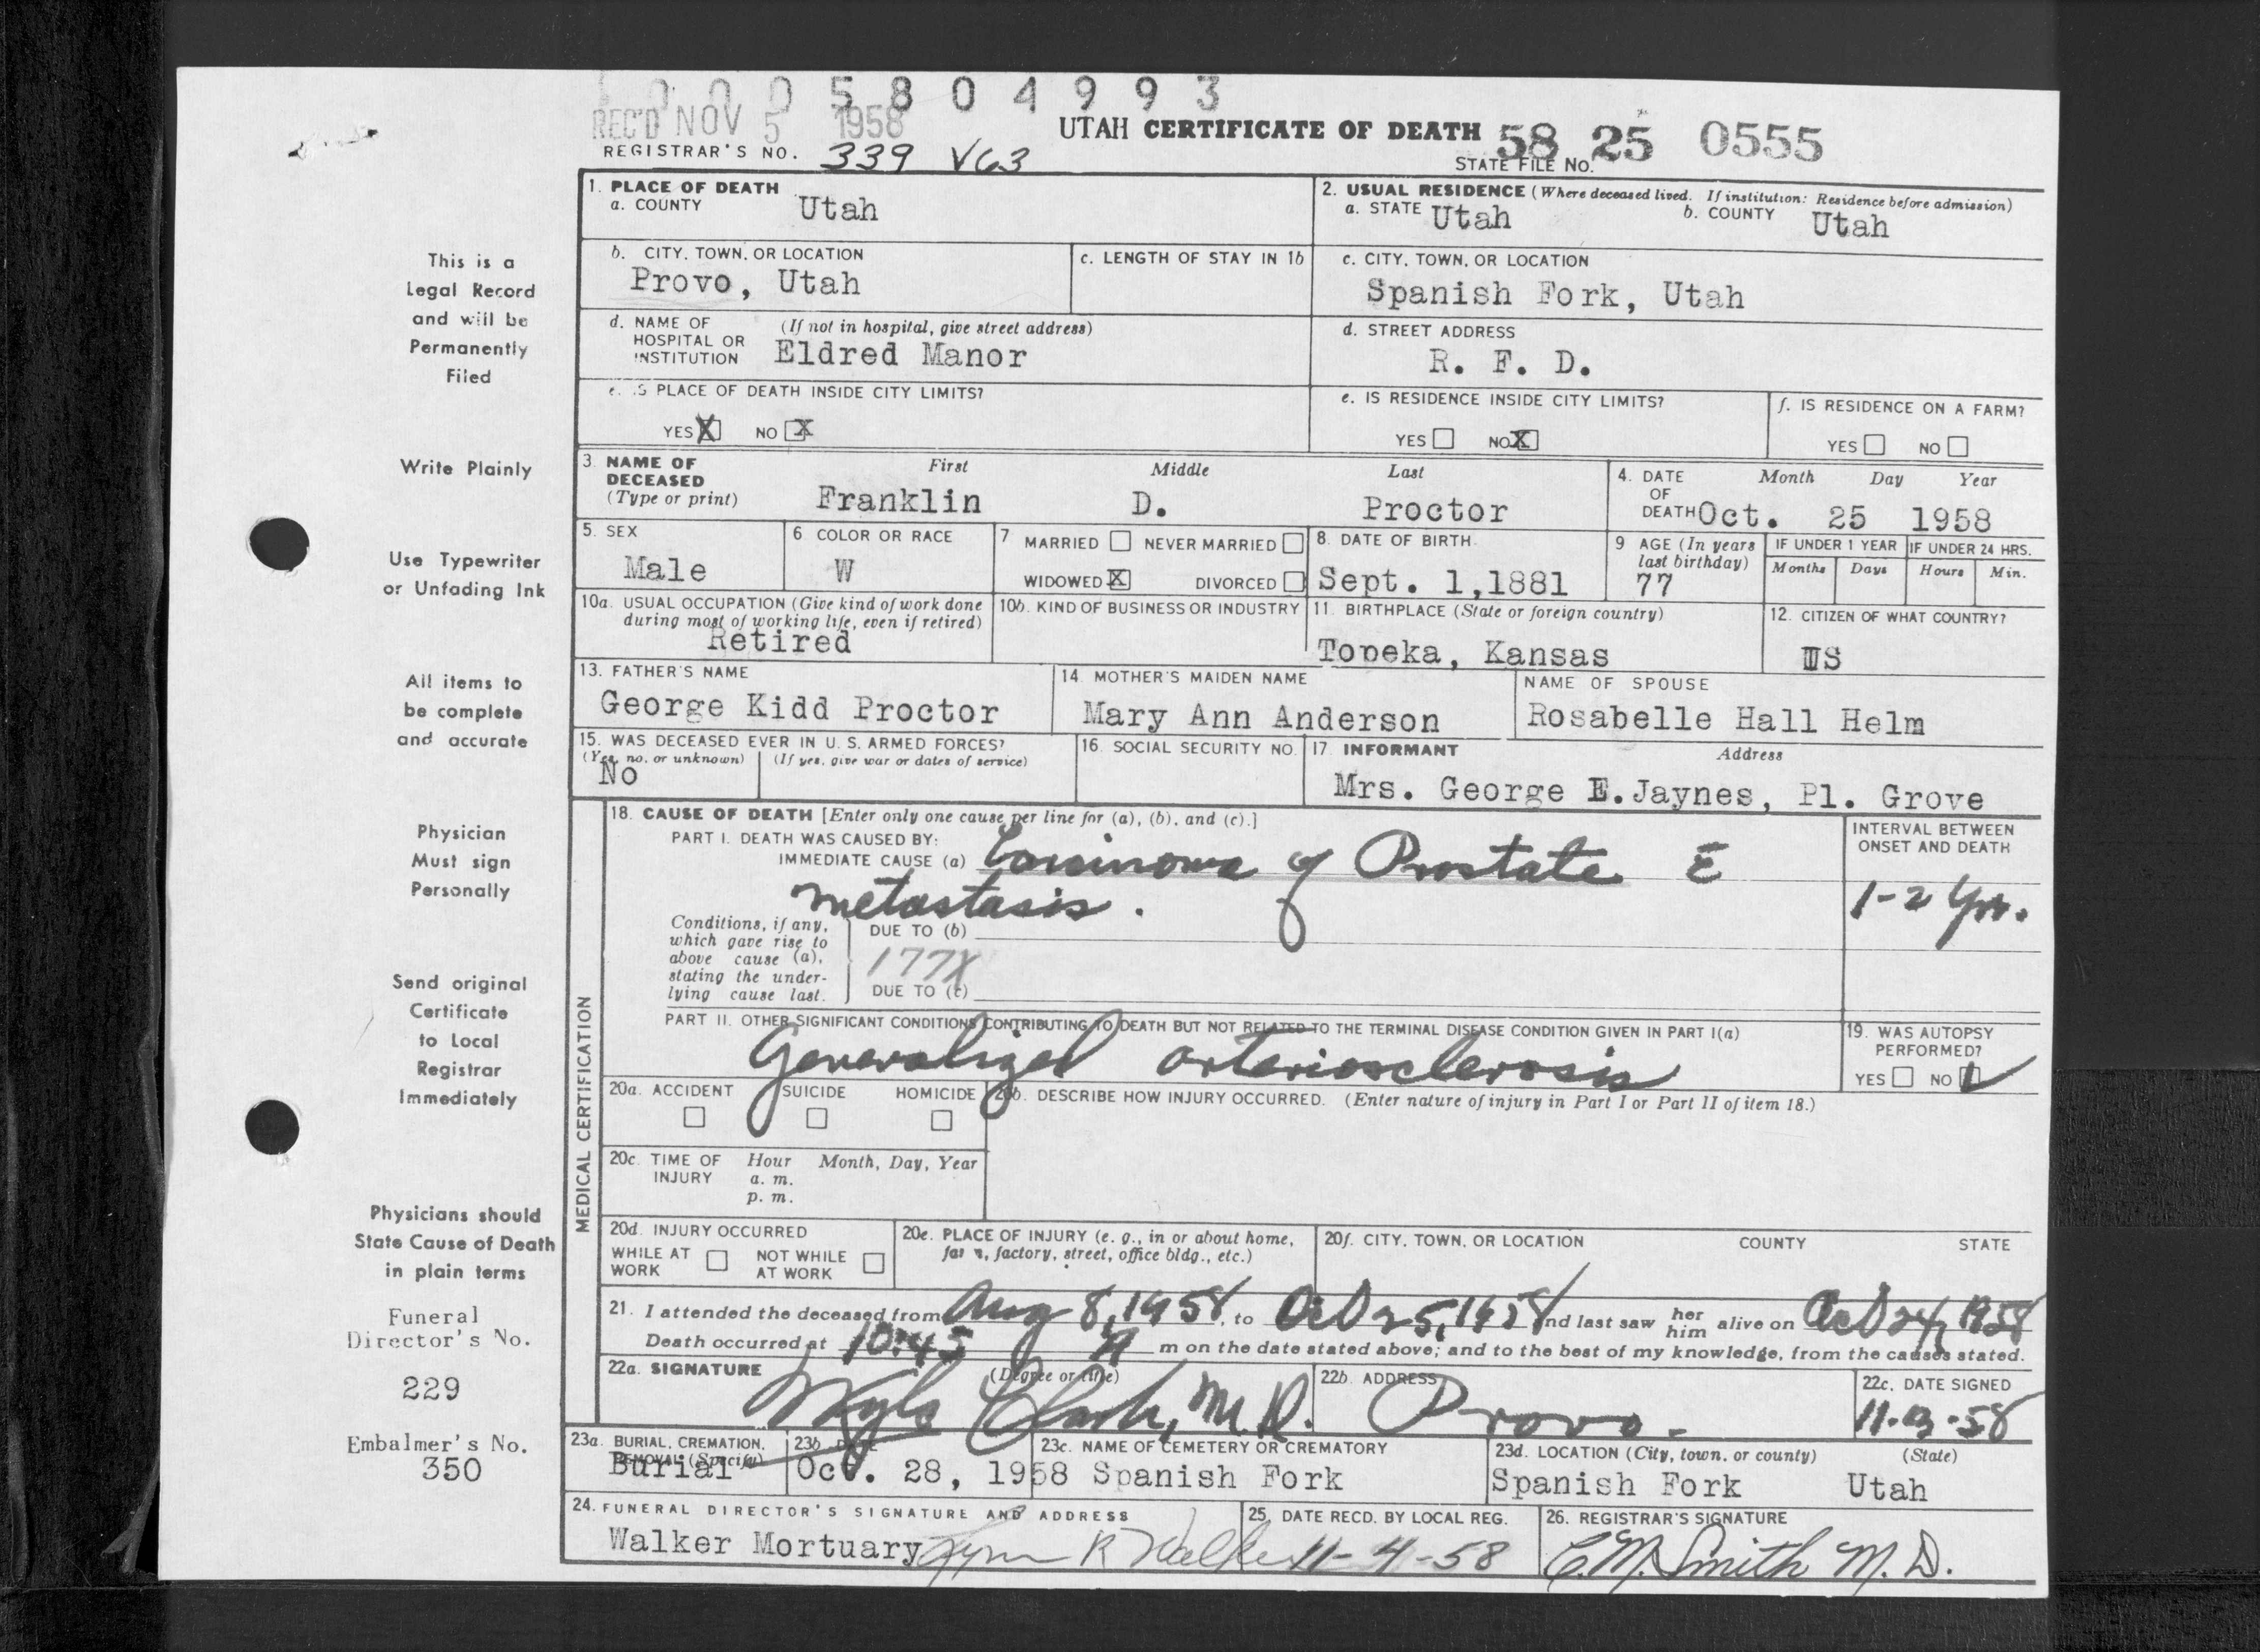 1 0 0 0 5 8 0 4 9 9 3
REC'D NOV 5 1958
UTAH CERTIFICATE OF DEATH 58 25 0555
REGISTRAR'S NO. 339 V63
STATE FILE NO.
This is a
Legal Record
and will be
Permanently
Filed
Write Plainly
Use Typewriter
or Unfading Ink
All items to
be complete
and accurate
Physician
Must sign
Personally
Send original
Certificate
to Local
Registrar
Immediately
Physicians should
State Cause of Death
in plain terms
Funeral
Director's No.
229
Embalmer's No.
350
1. PLACE OF DEATH
a. COUNTY Utah
2. USUAL RESIDENCE (Where deceased lived. If institution: Residence before admission)
a. STATE Utah b. COUNTY Utah
b. CITY, TOWN, OR LOCATION
Provo, Utah
c. LENGTH OF STAY IN 1b
c. CITY, TOWN, OR LOCATION
Spanish Fork, Utah
d. NAME OF HOSPITAL OR INSTITUTION (If not in hospital, give street address)
Eldred Manor
d. STREET ADDRESS
R. F. D.
e. IS PLACE OF DEATH INSIDE CITY LIMITS?
YES X NO X
e. IS RESIDENCE INSIDE CITY LIMITS?
YES NO X
f. IS RESIDENCE ON A FARM?
YES NO
3. NAME OF DECEASED (Type or print)
First Middle Last
Franklin D. Proctor
4. DATE OF DEATH Month Day Year
Oct. 25 1958
5. SEX
Male
6 COLOR OR RACE
W
7 MARRIED NEVER MARRIED
WIDOWED X DIVORCED
8. DATE OF BIRTH
Sept. 1,1881
9 AGE (In years last birthday)
77
IF UNDER 1 YEAR
Months Days
IF UNDER 24 HRS.
Hours Min.
10a. USUAL OCCUPATION (Give kind of work done during most of working life, even if retired)
Retired
10b. KIND OF BUSINESS OR INDUSTRY
11. BIRTHPLACE (State or foreign country)
Topeka, Kansas
12. CITIZEN OF WHAT COUNTRY?
US
13. FATHER'S NAME
George Kidd Proctor
14. MOTHER'S MAIDEN NAME
Mary Ann Anderson
NAME OF SPOUSE
Rosabelle Hall Helm
15. WAS DECEASED EVER IN U. S. ARMED FORCES?
(Yes, no, or unknown) (If yes, give war or dates of service)
No
16. SOCIAL SECURITY NO.
17. INFORMANT Address
Mrs. George E.Jaynes, Pl. Grove
MEDICAL CERTIFICATION
18. CAUSE OF DEATH [Enter only one cause per line for (a), (b), and (c).]
PART I. DEATH WAS CAUSED BY:
IMMEDIATE CAUSE (a) Carcinoma of Prostate c̄
metastasis.
INTERVAL BETWEEN ONSET AND DEATH
1-2 Yrs.
Conditions, if any, which gave rise to above cause (a), stating the underlying cause last.
DUE TO (b)
177X
DUE TO (c)
PART II. OTHER SIGNIFICANT CONDITIONS CONTRIBUTING TO DEATH BUT NOT RELATED TO THE TERMINAL DISEASE CONDITION GIVEN IN PART I(a)
Generalized arteriosclerosis
19. WAS AUTOPSY PERFORMED?
YES NO ✓
20a. ACCIDENT SUICIDE HOMICIDE
20b. DESCRIBE HOW INJURY OCCURRED. (Enter nature of injury in Part I or Part II of item 18.)
20c. TIME OF INJURY Hour Month, Day, Year
a. m.
p. m.
20d. INJURY OCCURRED
WHILE AT WORK NOT WHILE AT WORK
20e. PLACE OF INJURY (e. g., in or about home, farm, factory, street, office bldg., etc.)
20f. CITY, TOWN, OR LOCATION COUNTY STATE
21. I attended the deceased from Aug 8, 1958, to Oct 25, 1958 and last saw her him alive on Oct 24, 1958
Death occurred at 10:45 A m on the date stated above; and to the best of my knowledge, from the causes stated.
22a. SIGNATURE (Degree or title)
Clark, M.D.
22b. ADDRESS
Provo.
22c. DATE SIGNED
11-3-58
23a. BURIAL, CREMATION, REMOVAL (Specify)
Burial
23b. DATE
Oct. 28, 1958
23c. NAME OF CEMETERY OR CREMATORY
Spanish Fork
23d. LOCATION (City, town, or county) (State)
Spanish Fork Utah
24. FUNERAL DIRECTOR'S SIGNATURE AND ADDRESS
Walker Mortuary Lynn R Walker
25. DATE RECD. BY LOCAL REG.
11-4-58
26. REGISTRAR'S SIGNATURE
C.M. Smith M.D.